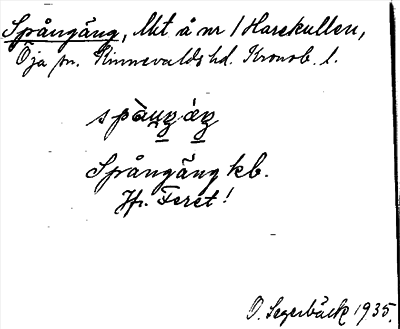 Spångäng, lkt å nr 1 Harekullen,
Öja sn. Kinnevalds hd. Kronob. l.
Spångäng kb.
Jfr. Feret!
O. Segerbäck 1935.